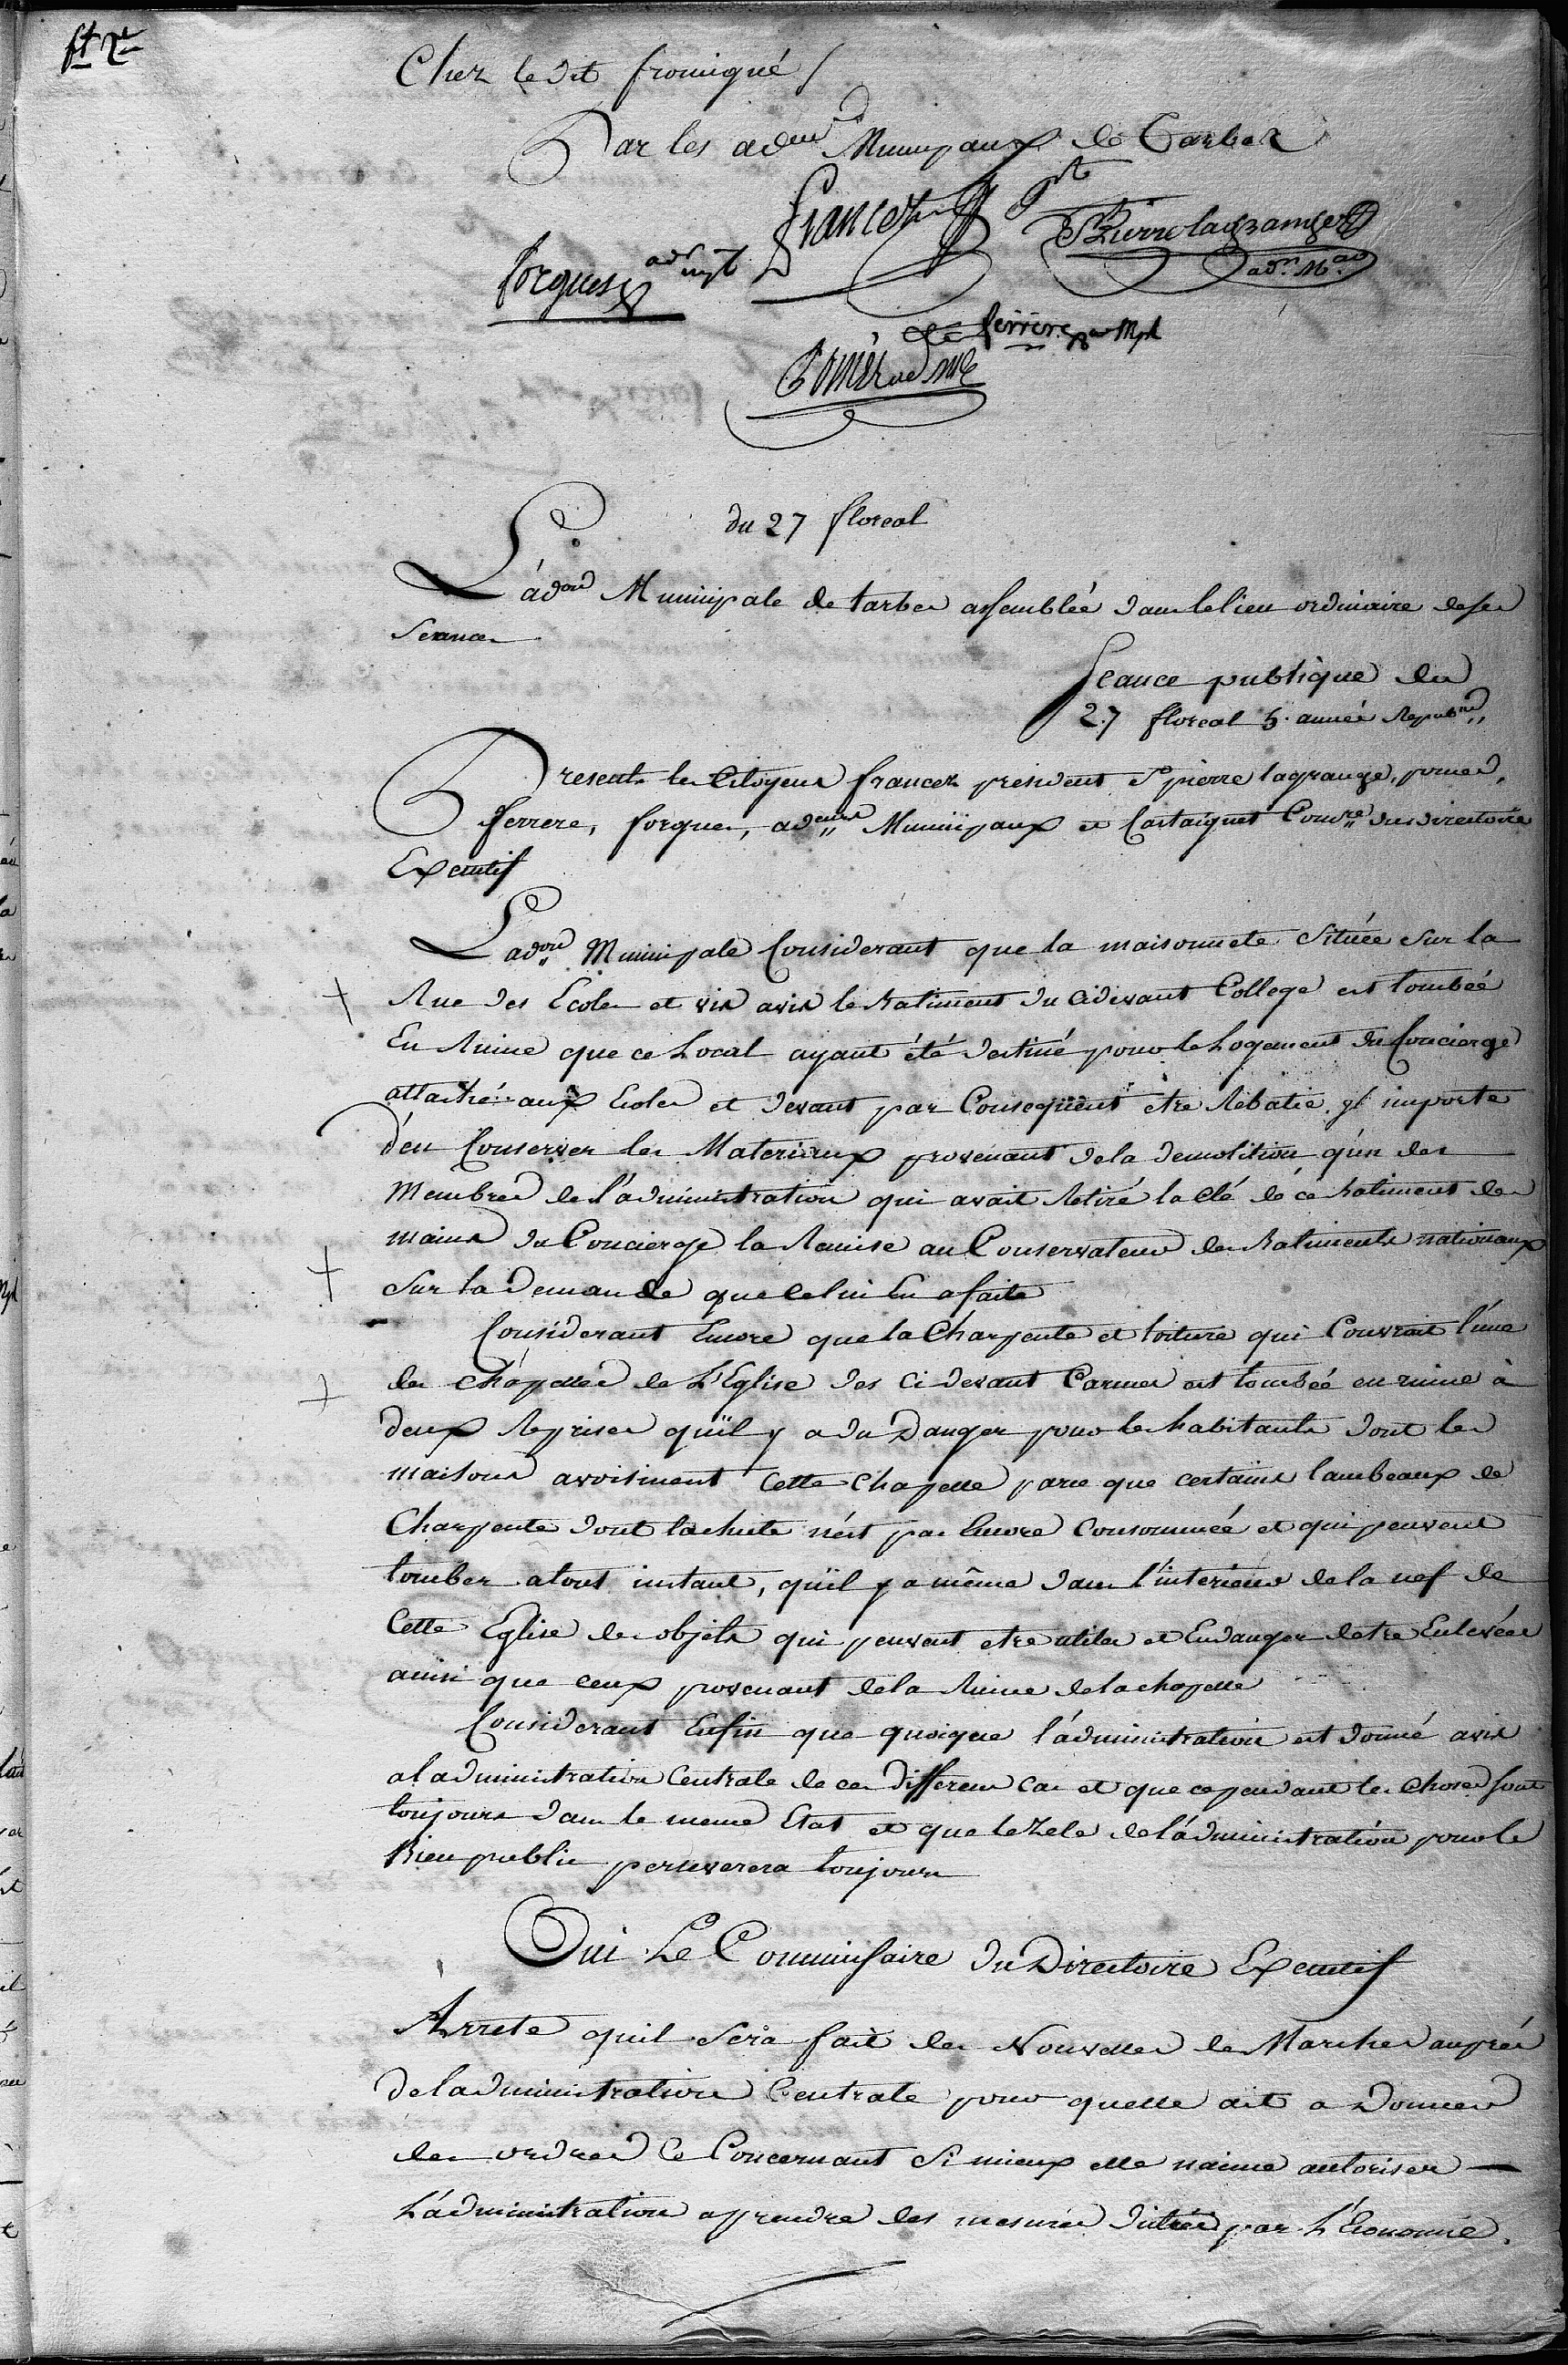 Chez le dit fromigué /
Par les ad.eurs Municipaux de Tarbes
francez pt
St Pierre lagrange
adm. M.al
forgues adm mpl
ferrere adm Mpl
Pomés ad. mle
du 27 floreal
L'ad.on Municipale de tarbes assemblée dans le lieu ordinaire de ses
Seances
Seance publique du
27 floreal 5.e année Repub.ne
Presents les Citoyens francez president St pierre lagrange, pomes,
ferrere, forgues, ad.eurs Municipaux et Castaignet Comre du directoire
Executif
L'ad.on Municipale Considerant que la maisonnete Située Sur la
Rue des Ecoles et vis avis le Batiment du cidevant College est tombée
En Ruine que ce Local ayant été destiné pour le Logement du Concierge
attaché aux Ecoles et devant par Consequent etre Rebatie, il importe
d'en Conserver les Materiaux provenant de la demolition qu'un des
Membres de l'administration qui avait Retiré la clé de ce batiment des
mains du Concierge la Remise au Conservateur des Batiments nationaux
Sur la demande que celui En a faite
Considerant Encore que la Charpente et toiture qui Couvrait l'une
des chapelles de L'Eglise des ci devant Carmes est tombée en ruine à
deux Reprises qu'il y a du Danger pour les habitants dont les
maisons avoisinent Cette Chapelle parce que certains lambeaux de
Charpente dont la chute n'est pas Encore Consommée et qui peuvent
tomber atout instant, qu'il y a même dans l'interieur de la nef de
Cette Eglise des objets qui peuvent etre utiles et En danger detre Enlevées
ainsi que ceux provenant de la Ruine de la chapelle
Considerant Enfin que quoique l'administration ait donné avis
al administration Centrale de ces differens Cas et que cependant les Choses sont
toujours dans le meme Etat et que le Zele de l'administration pour le
Bien public perseverera toujours
Oui Le Commissaire du Directoire Executif
Arrete quil Sera fait des Nouvelles de Marches auprés
de ladministration Centrale pour quelle ait a Donner
des ordres Ce Concernant Si mieux elle naime autoriser
L'administration a prendre des mesures dictées par L'Economie.